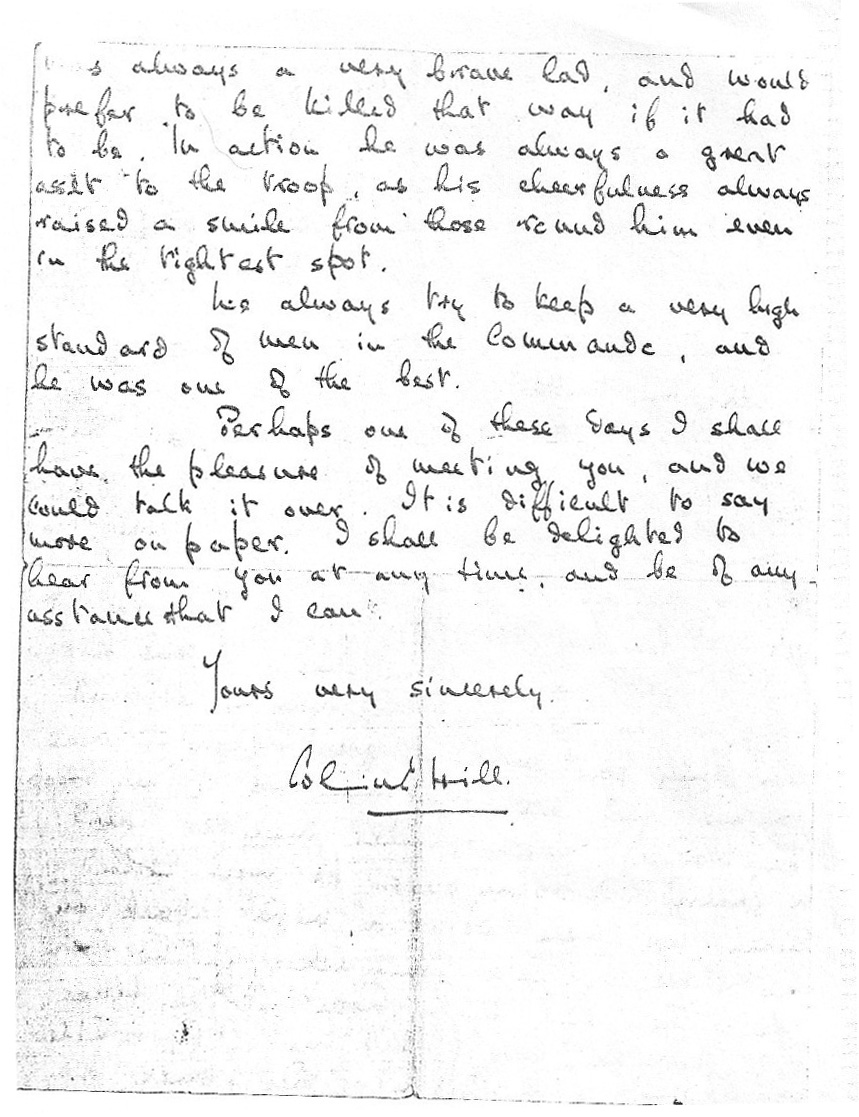 always a very brave lad, and would
prefer to be killed that way if it had
to be. In action he was always a great
asset to the troop, as his cheerfulness always
raised a smile from those round him even
in the tightest spot.
We always try to keep a very high
standard of men in the Commando, and
he was one of the best.
Perhaps one of these days I shall
have the pleasure of meeting you, and we
could talk it over. It is difficult to say
more on paper. I shall be delighted to
hear from you at any time, and be of any
asstance that I can.
Yours very sincerely.
Hill.